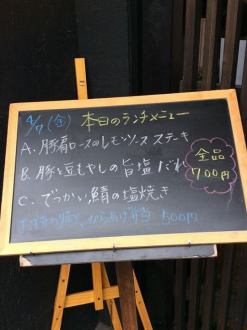 4/7(金) 本日のランチメニュー
A. 豚肩ロースのレモンソース ステーキ
B. 豚と豆もやしの旨塩だれ
C. でっかい鯖の塩焼き
全品
700円
からあげ弁当 500円